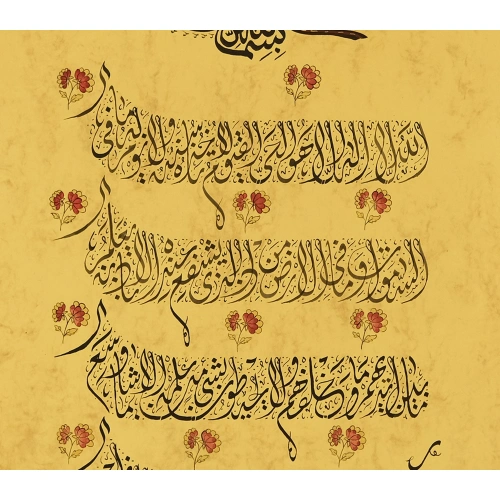 بسم
الله لا اله الا هو الحي القيوم لا تأخذه سنة ولا نوم له ما في
السموات وما في الارض من ذا الذي يشفع عنده الا باذنه يعلم ما
بين ايديهم وما خلفهم ولا يحيطون بشئ من علمه الا بما شاء وسع